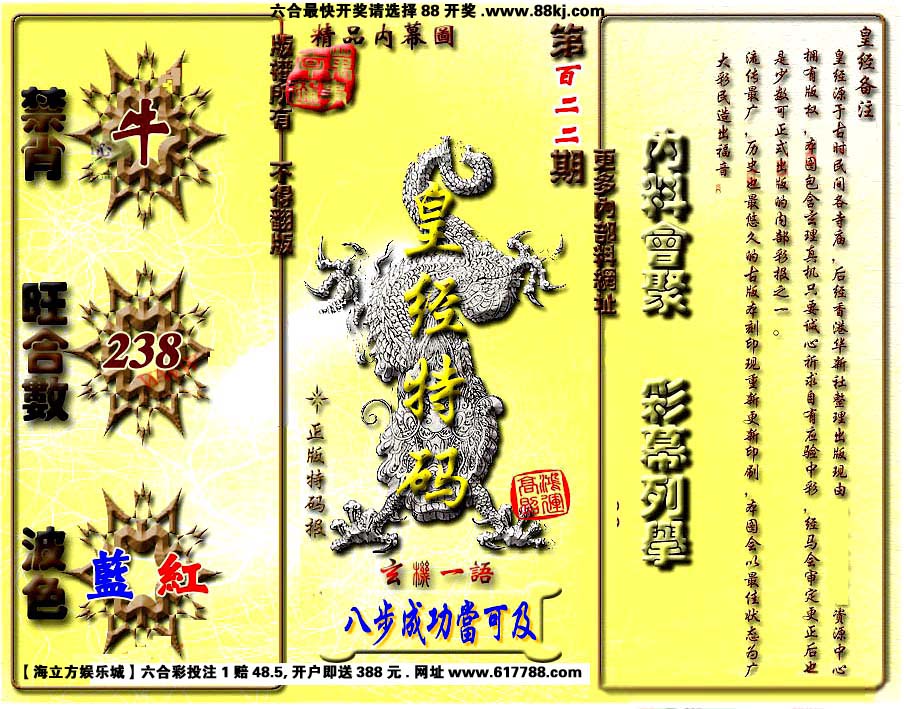 六合最快开奖请选择 88 开奖 .www.88kj.com
精品内幕圖
版權所有 不得翻版
第百二二期
更多內部料網址
禁肖
牛
旺合數
238
波色
藍 紅
皇经特码
正版特码报
鴻運高照
玄機一語
八步成功當可及
內料會聚 彩幕列舉
皇经备注
皇经源于古时民间各寺庙，后经香港华新社整理出版现由 资源中心
拥有版权，本图包含玄理真机只要诚心祈求自有应验中彩，经马会审定更正后也
是少数可正式出版的内部彩报之一。
流传最广，历史也最悠久的古版本刻印现重新更新印刷，本图会以最佳状态为广
大彩民造出福音
【海立方娱乐城】六合彩投注 1 赔 48.5, 开户即送 388 元 . 网址 www.617788.com